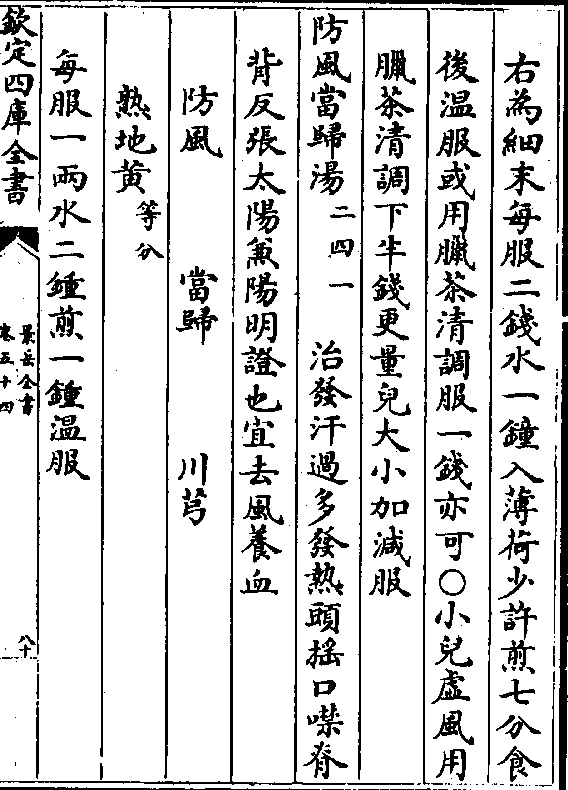 右為細末每服二錢水一鐘入薄荷少許煎七分食
後温服或用臘茶清調服一錢亦可〇小兒虛風用
臘茶清調下半錢更量兒大小加減服
防風當歸湯二四一 治發汗過多發熱頭揺口噤脊
背反張太陽兼陽明證也宜去風養血
防風 當歸 川芎
熟地黄等分
每服一兩水二鍾煎一鍾温服
欽定四庫全書
景岳全書
卷五十四
八十